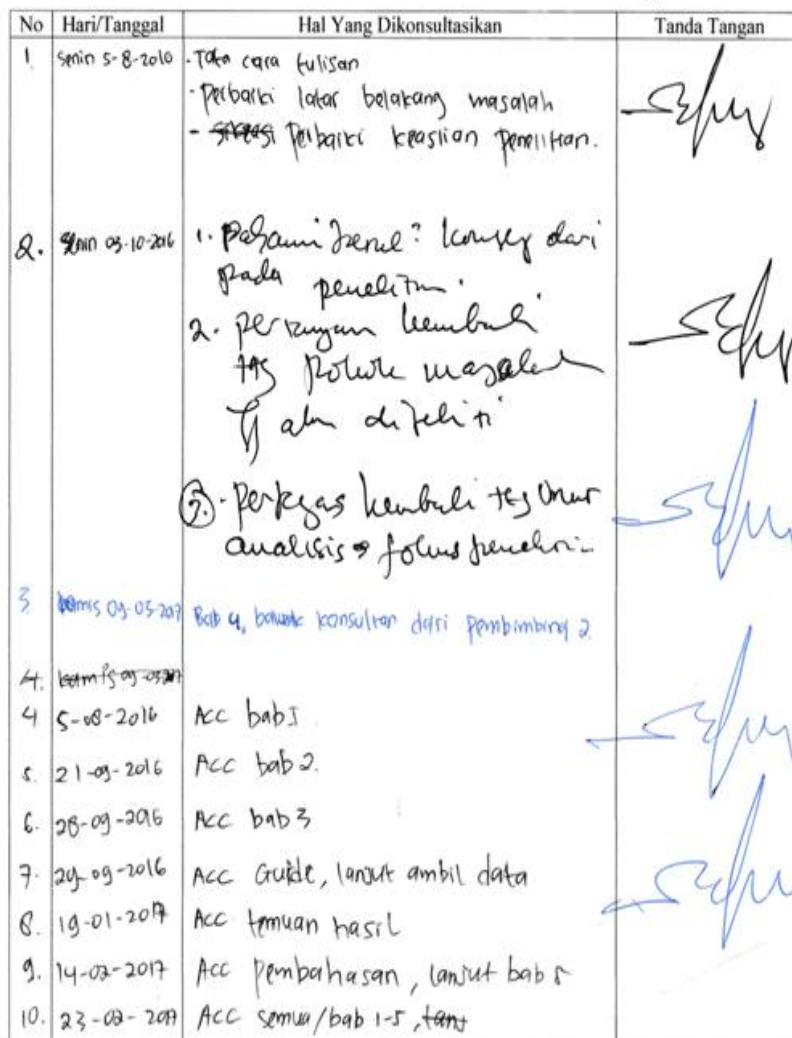 No Hari/Tanggal Hal Yang Dikonsultasikan Tanda Tangan
1 Senin 5-8-2016 - Tata cara tulisan
- Perbaiki latar belakang masalah
- Perbaiki keaslian penelitian.
2. Senin 03-10-2016 1. Pahami konsep dari
pada penelitian.
2. kembali
ttg pokok masalah
yg akan diteliti
3. Pertegas kembali ttg Unur
analisis fokus
3 Kamis 09-03-2017 Bab 4, konsultan dari pembimbing 2.
4. Kamis 09-03-2017
4 5-08-2016 Acc bab 1
5. 21-09-2016 Acc bab 2.
6. 28-09-2016 Acc bab 3
7. 29-09-2016 Acc Guide, lanjut ambil data
8. 19-01-2017 Acc temuan hasil
9. 14-02-2017 Acc pembahasan, lanjut bab 5
10. 23-02-2017 Acc semua/bab 1-5,